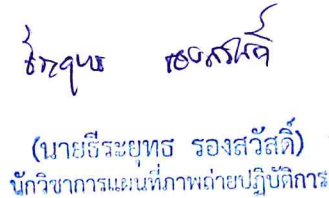 ธีระยุทธ รองสวัสดิ์
(นายธีระยุทธ รองสวัสดิ์)
นักวิชาการแผนที่ภาพถ่ายปฏิบัติการ